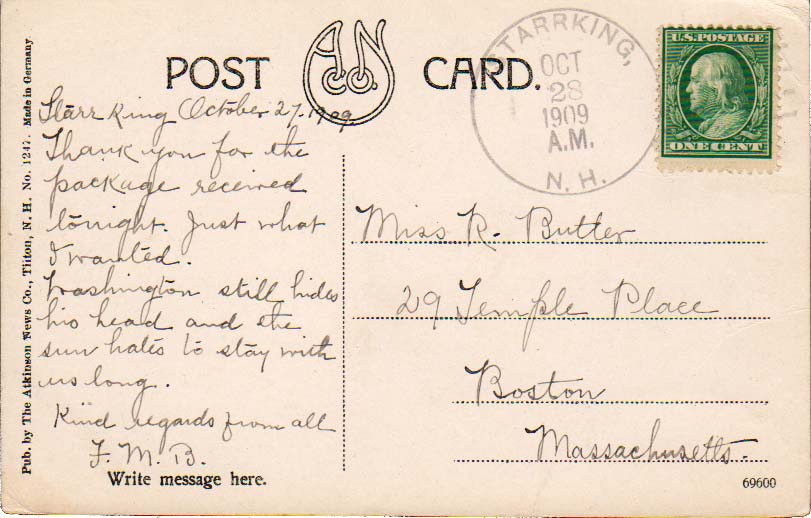 POST CARD.
A N Co.
STARRKING,
OCT
28
1909
A.M.
N. H.
U.S. POSTAGE
ONE CENT
Starr King October 27. 1909.
Thank you for the
package received
tonight. Just what
I wanted.
Washington still hides
his head and the
sun hates to stay with
us long.
Kind regards from all
F. M. B.
Write message here.
Miss R. Butler
29 Temple Place
Boston
Massachusetts.
69600
Pub. by The Atkinson News Co., Tilton, N. H. No. 1247. Made in Germany.